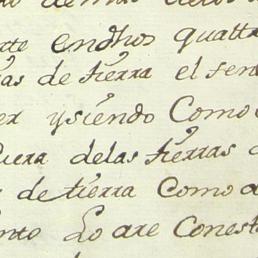 endhos quatt
as de tierra el sem
er ysiendo Como
uera delas tierras
de tierra Como a
ento Lo are Conest